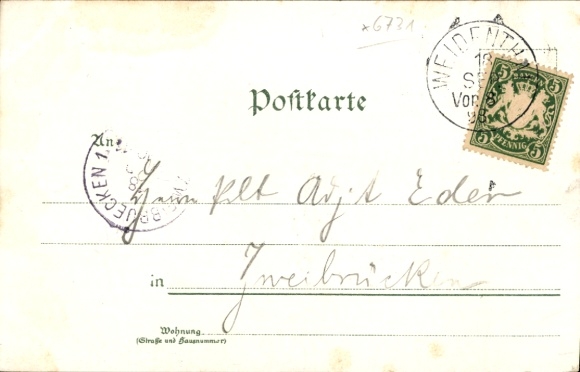 x6731
WEIDENTH
18
SE
Vor. 8
98
5 BAYERN 5
5 PFENNIG 5
Postkarte
An
ZWEIBRUECKEN 1.
Herrn Plt Adjt Eder
in Zweibrücken
Wohnung
(Straße und Hausnummer)